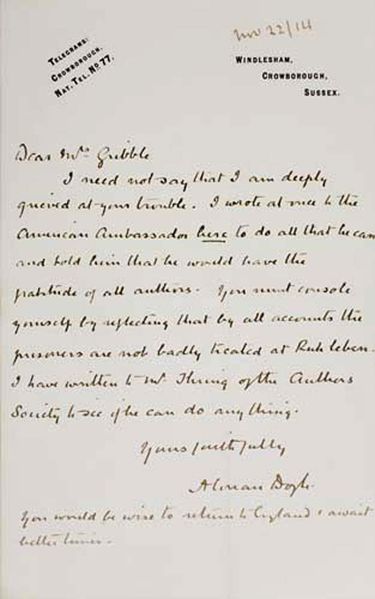 Nov 22/14
Telegrams:
Crowborough.
Nat. Tel. No 77.
Windlesham,
Crowborough,
Sussex.
Dear Mrs Gribble
I need not say that I am deeply
grieved at your trouble. I wrote at once to the
American Ambassador here to do all that he can
and told him that he would have the
gratitude of all authors. You must console
yourself by reflecting that by all accounts the
prisoners are not badly treated at Ruhleben.
I have written to Mr Thring of the Authors
Society to see if he can do anything.
Yours faithfully
A Conan Doyle.
You would be wise to return to England & await
better times.